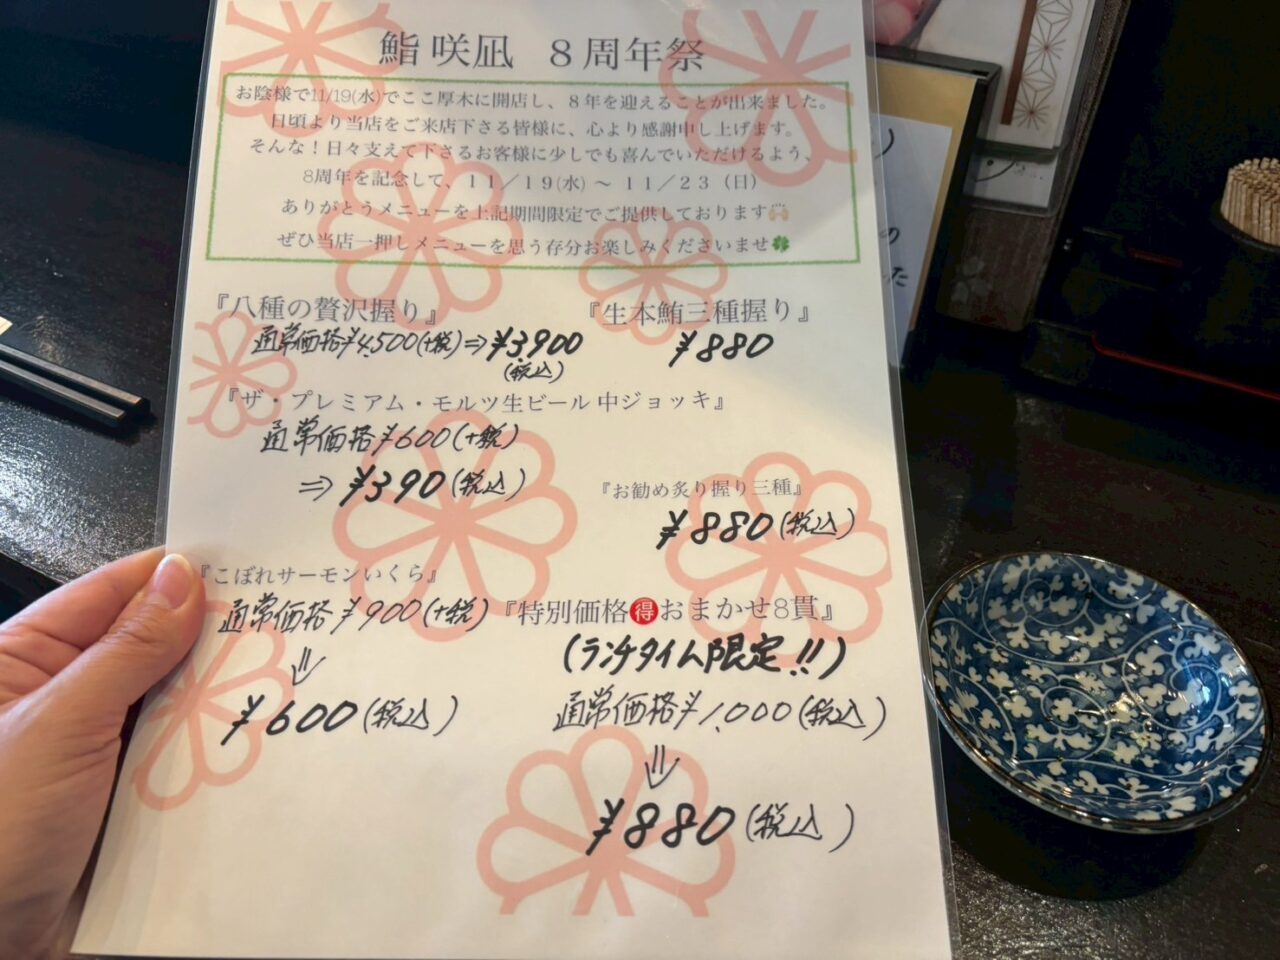 鮨 咲凪 8周年祭
お陰様で11/19(水)でここ厚木に開店し、8年を迎えることが出来ました。
日頃より当店をご来店下さる皆様に、心より感謝申し上げます。
そんな！日々支えて下さるお客様に少しでも喜んでいただけるよう、
8周年を記念して、11／19(水) ～ 11／23（日）
ありがとうメニューを上記期間限定でご提供しております🙌
ぜひ当店一押しメニューを思う存分お楽しみくださいませ🍀
『八種の贅沢握り』
通常価格¥4,500(+税)⇒¥3,900
(税込)
『生本鮪三種握り』
¥880
『ザ・プレミアム・モルツ生ビール 中ジョッキ』
通常価格¥600(+税)
⇒ ¥390(税込)
『お勧め炙り握り三種』
¥880(税込)
『こぼれサーモンいくら』
通常価格¥900(+税)
⇓
¥600(税込)
『特別価格㊝おまかせ8貫』
(ランチタイム限定!!)
通常価格¥1,000(税込)
⇓
¥880(税込)